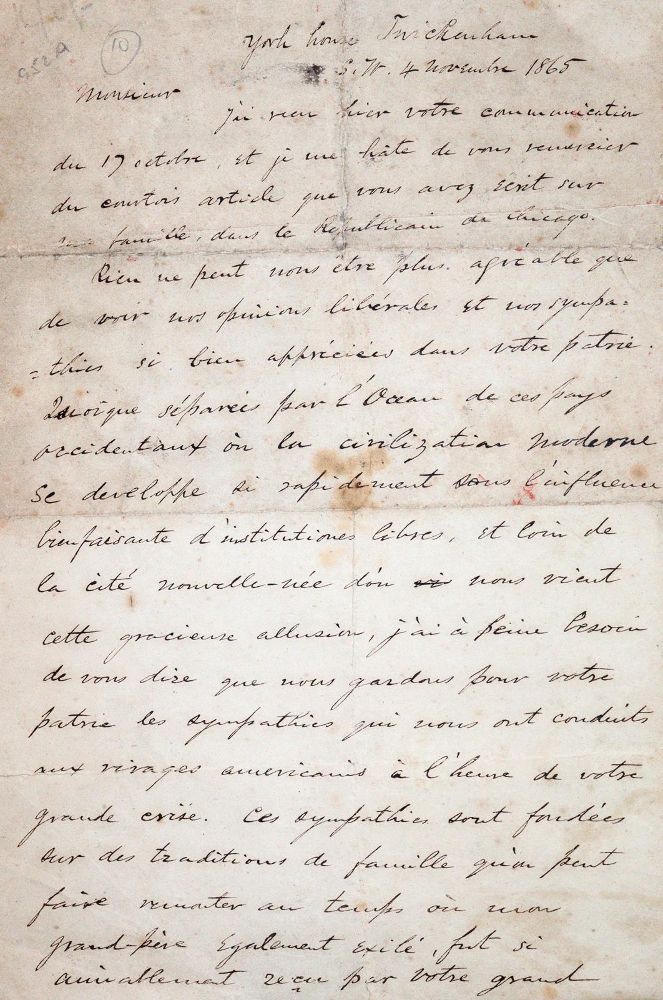 952A
10
York house Twickenham
S.W. 4 Novembre 1865
Monsieur
j'ai recu hier votre communication
du 17 octobre, et je me hâte de vous remercier
du courtois article que vous avez écrit sur
ma famille, dans le Republicain de Chicago.
Rien ne peut nous être plus agréable que
de voir nos opinions libérales et nos sympa=
=thies si bien appréciées dans votre patrie.
Quoique séparés par l'Ocean de ces pays
occidentaux òn la civilization moderne
se developpe si rapidement sous l'influence
bienfaisante d'institutiones libres, et loin de
la cité nouvelle-née d'òn nous vient
cette gracieuse allusion, j'ai à peine besoin
de vous dire que nous gardons pour votre
patrie les sympathies qui nous ont conduits
aux rivages americains à l'heure de votre
grande crise. Ces sympathies sont fondées
sur des traditions de famille qu'on peut
faire remonter au temps òu mon
grand-père egalement exilé, fut si
aimablement reçu par votre grand